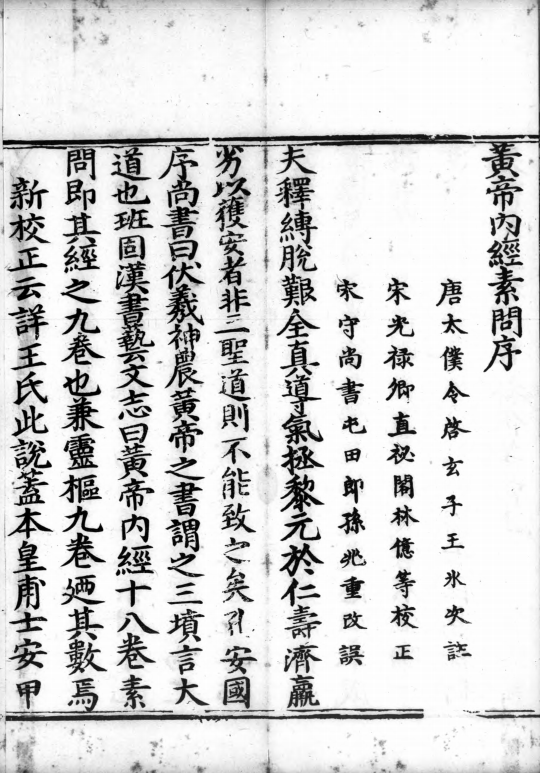 黃帝內經素問序
唐太僕令啓玄子王氷次註
宋光禄卿直祕閣林億等校正
宋守尚書屯田郎孫兆重改誤
夫釋縛脫艱全真導氣拯黎元於仁壽濟羸
劣以獲安者非三聖道則不能致之矣孔安國
序尚書曰伏羲神農黃帝之書謂之三墳言大
道也班固漢書藝文志曰黃帝內經十八卷素
問即其經之九卷也兼靈樞九卷廼其數焉
新校正云詳王氏此說蓋本皇甫士安甲